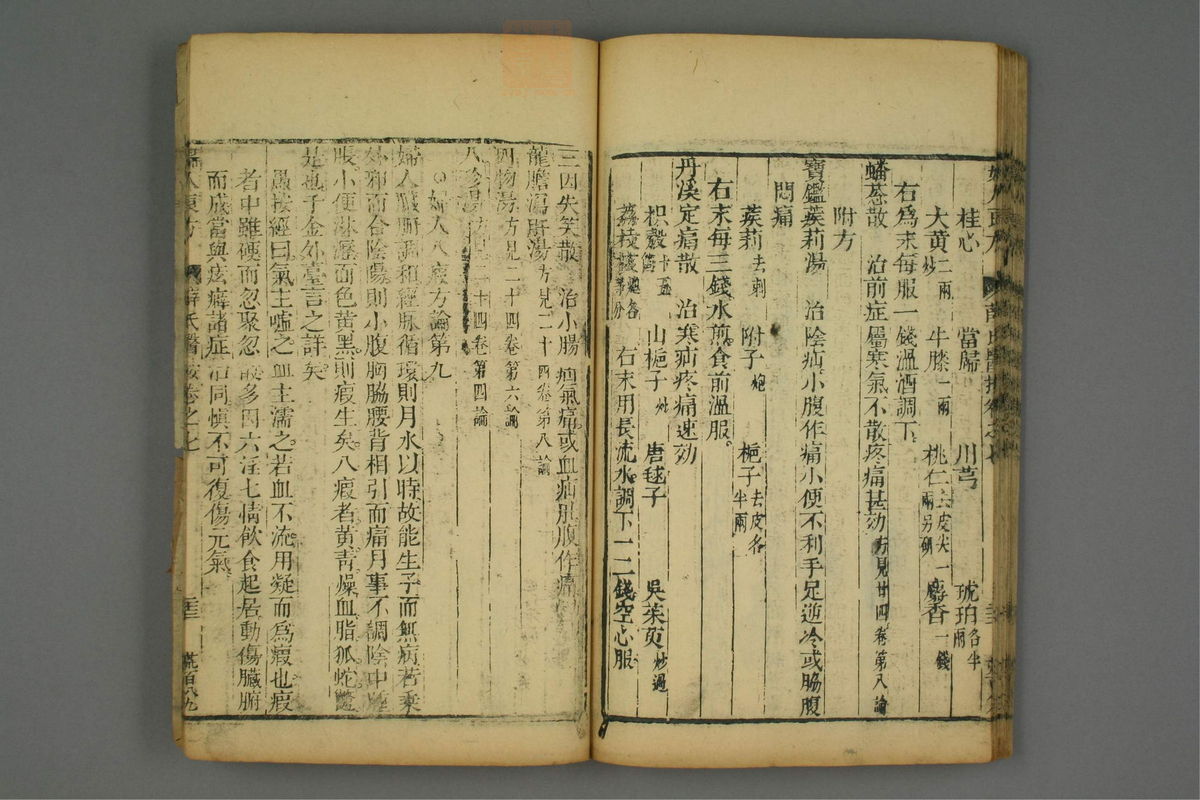 桂心 當歸 川芎 琥珀各半兩
大黃二兩炒 牛膝一兩 桃仁去皮尖一兩另研 麝香一錢
右爲末每服一錢溫酒調下
蟠葱散 治前症屬寒氣不散疼痛甚効方見廿四卷第八論
附方
寶鑑蒺莉湯 治陰疝小腹作痛小便不利手足逆冷或脇腹
悶痛
蒺莉去刺 附子炮 梔子去皮各半兩
右末每三錢水煎食前溫服
丹溪定痛散 治寒疝疼痛速効
枳殼 山梔子炒 唐毬子 吳茱萸炒過
荔枝 右末用長流水調下一二錢空心服
三因失笑散 治小腸疝氣痛或血疝肚腹作痛
龍膽瀉肝湯方見二十四卷第八論
四物湯方見二十四卷第六論
八珍湯方見二十四卷第四論
○婦人八瘕方論第九
婦人臟腑調和經脉循環則月水以時故能生子而無病若乘
外邪而合陰陽則小腹胸脇腰背相引而痛月事不調陰中腫
脹小便淋瀝而色黃黑則瘕生矣八瘕者黃靑燥血脂狐蛇鱉
是也予金外臺言之詳矣
愚按經曰氣主嘘之血主濡之若血不流用凝而爲瘕也瘕
者中雖硬而忽聚忽散多因六淫七情飲食起居動傷臟腑
而成當與痃癖諸症治同愼不可復傷元氣
婦人良方 薛氏醫按卷之七